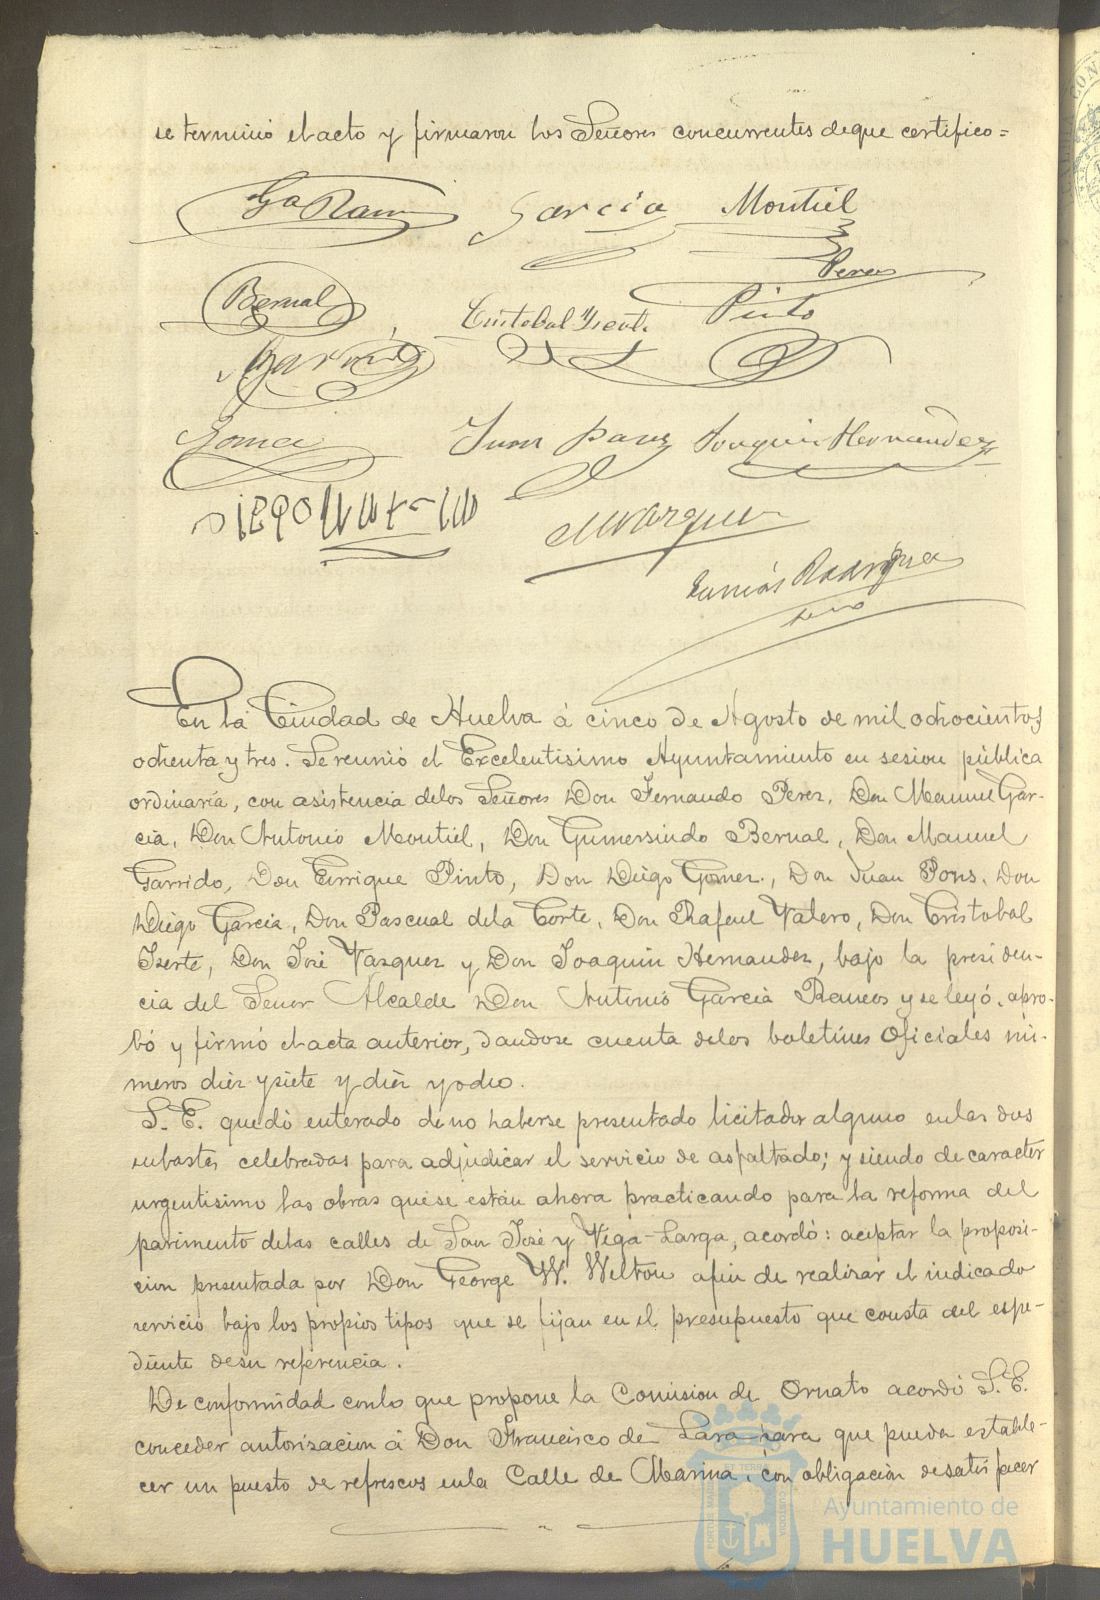 se terminó el acto y firmaron los Señores concurrentes de que certifico=
Ga Ramos García Montiel
Perez
Bernal Cristobal Yserte Pinto
Garrido
Gomez Juan Pons Joaquin Hernandez
Vazquez
Tomás Rodriguez
En la Ciudad de Huelva á cinco de Agosto de mil ochocientos
ochenta y tres. Se reunió el Excelentisimo Ayuntamiento en sesion pública
ordinaria, con asistencia delos Señores Don Fernando Perez, Don Manuel Gar-
cia, Don Antonio Montiel, Don Gumersindo Bernal, Don Manuel
Garrido, Don Enrique Pinto, Don Diego Gomez, Don Juan Pons, Don
Diego Garcia, Don Pascual dela Corte, Don Rafael Valero, Don Cristobal
Iserte, Don José Vazquez y Don Joaquin Hernandez, bajo la presiden-
cia del Señor Alcalde Don Antonio Garcia Ramos y se leyó, apro-
bó y firmó el acta anterior, dandose cuenta delos boletines Oficiales nú-
meros diez y siete y diez y ocho.
S. E. quedó enterado de no haberse presentado licitador alguno en las dos
subastas celebradas para adjudicar el servicio de asfaltado; y siendo de caracter
urgentisimo las obras que se están ahora practicando para la reforma del
pavimento delas calles de San José y Vega-Larga, acordó: aceptar la proposi-
cion presentada por Don George W. Welton afin de realizar el indicado
servicio bajo los propios tipos que se fijan en el presupuesto que consta del espe-
diente desu referencia.
De conformidad conlo que propone la Comision de Ornato acordó S. E.
conceder autorizacion á Don Francisco de Lara para que pueda estable-
cer un puesto de refrescos enla Calle de Marina, con obligacion de satisfacer
Ayuntamiento de
HUELVA